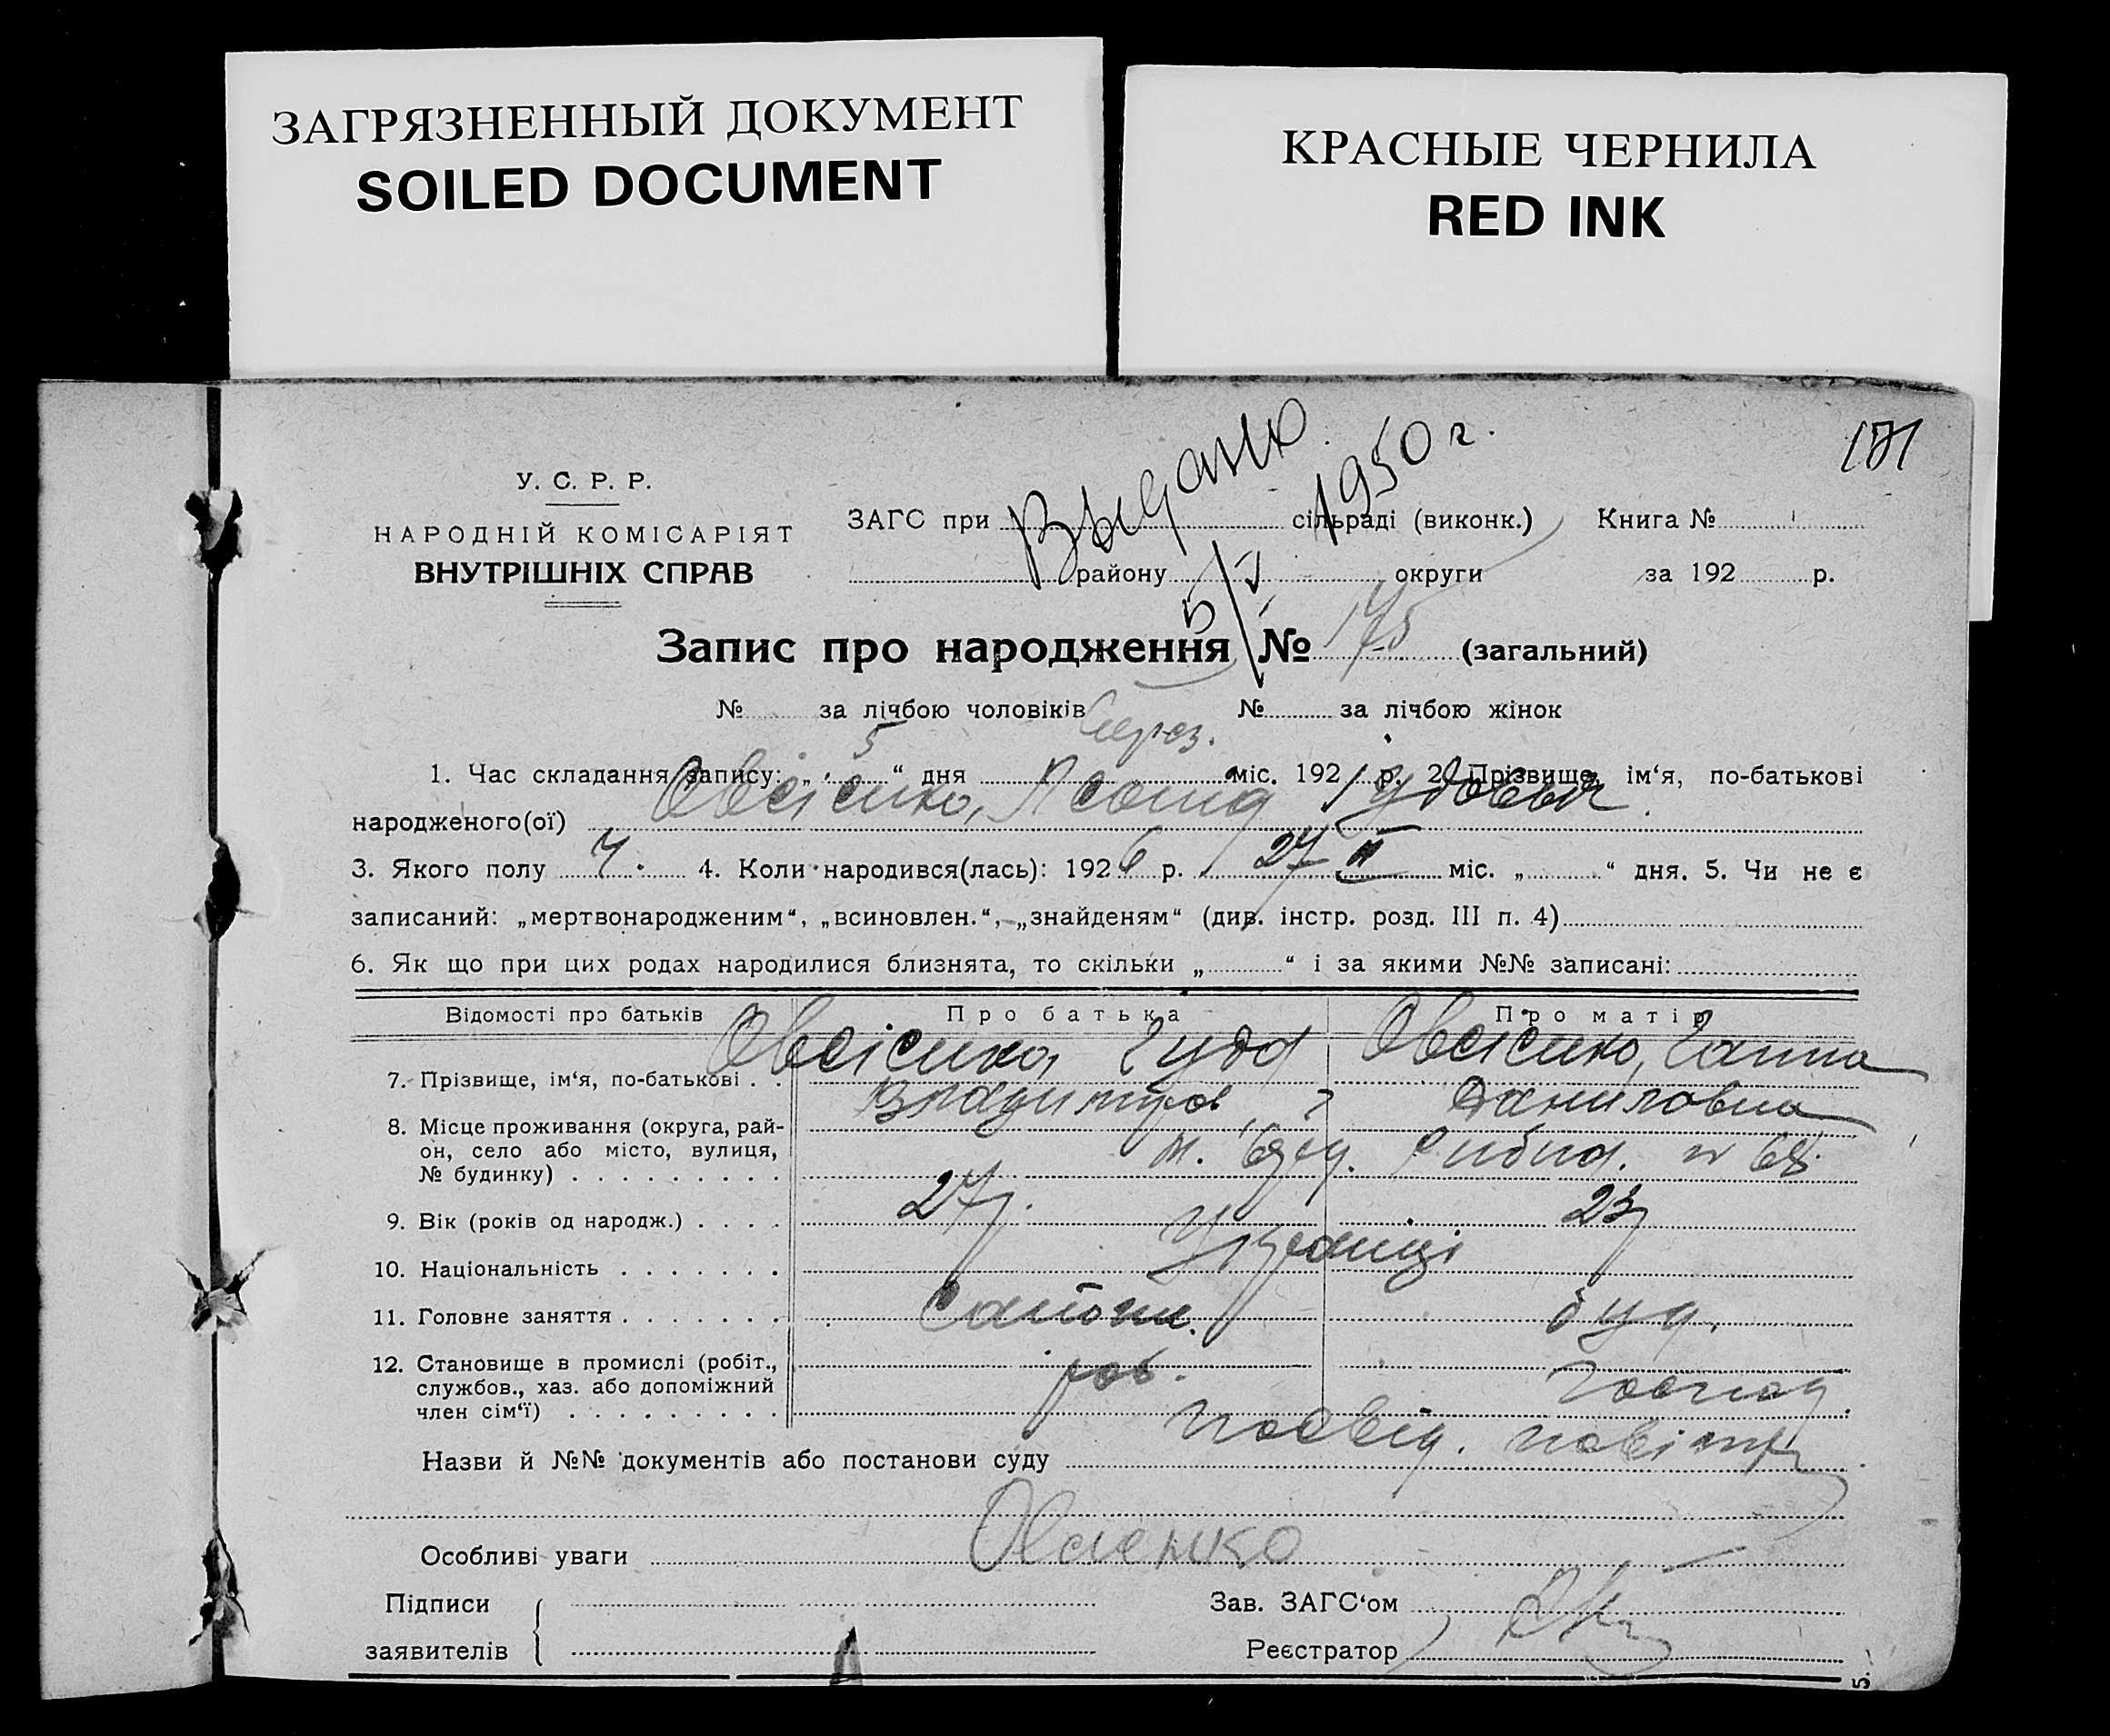 ЗАГРЯЗНЕННЫЙ ДОКУМЕНТ
SOILED DOCUMENT
КРАСНЫЕ ЧЕРНИЛА
RED INK
171
Выдано
5/V 1950 г.
У. С. Р. Р.
НАРОДНІЙ КОМІСАРІЯТ
ВНУТРІШНІХ СПРАВ
ЗАГС при сільраді (виконк.) Книга №
району округи за 192 р.
Запис про народження № 175 (загальний)
№ за лічбою чоловіків № за лічбою жінок
1. Час складання запису: „ 5 “ дня берез. міс. 192 р. 2. Прізвище, ім‘я, по-батькові
народженого(ої) Овсієнко, Леонід
3. Якого полу ч. 4. Коли народився(лась): 1926 р. 27 II міс. „ “ дня. 5. Чи не є
записаний: „мертвонародженим“, „всиновлен.“, „знайденям“ (див. інстр. розд. III п. 4)
6. Як що при цих родах народилися близнята, то скільки „ “ і за якими №№ записані:
Відомості про батьків Про батька Про матір
7. Прізвище, ім‘я, по-батькові . . Овсієнко, Овсієнко, Ганна
Владимиров Даниловна
8. Місце проживання (округа, рай-
он, село або місто, вулиця,
№ будинку) . . . . . . . . . м. 68
9. Вік (років од народж.) . . . . 27 р. 23 р
10. Національність . . . . . . . Українці
11. Головне заняття . . . . . . .
12. Становище в промислі (робіт.,
службов., хаз. або допоміжний
член сім‘ї) . . . . . . . . . роб. господ.
Назви й №№ документів або постанови суду посвід.
Особливі уваги Овсиенко
Підписи
заявителів
Зав. ЗАГС‘ом
Реєстратор
5.